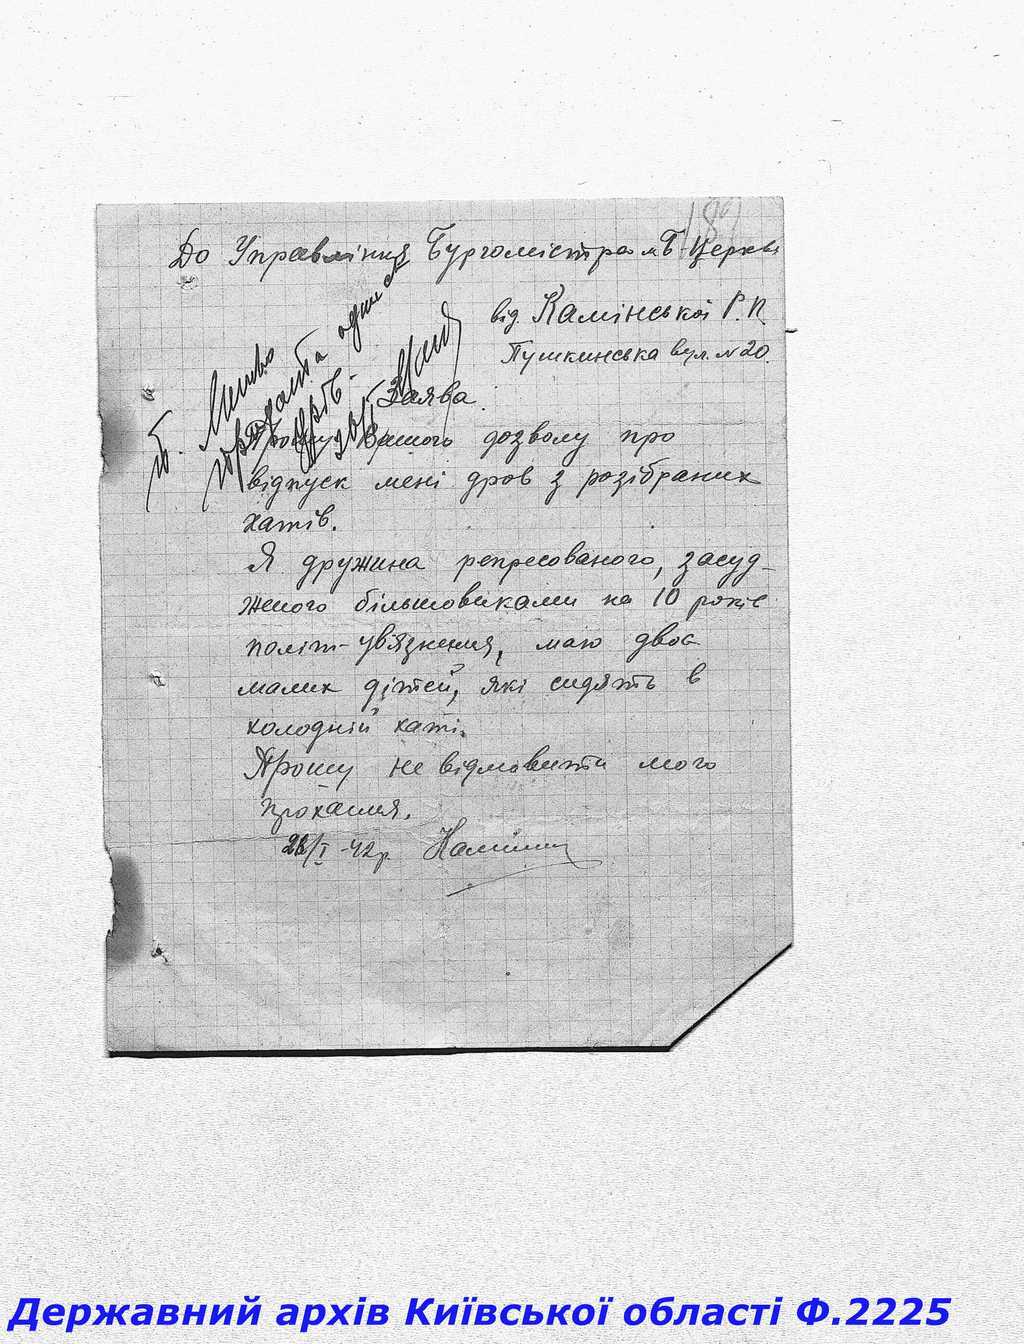 189
До Управління Бургомістра м Б-Церкви
від Камінської Р. П.
Пушкинська вул. № 20.
Заява.
Прошу Вашого дозволу про
відпуск мені дров з розібраних
хатів.
Я дружина репресованого, засуд-
женого більшовиками на 10 років
политвувязнення, маю двоє
малих дітей, які сидять в
холодній хаті.
Прошу не відмовити мого
прохання.
28/I-42р
Державний архів Київської області Ф.2225